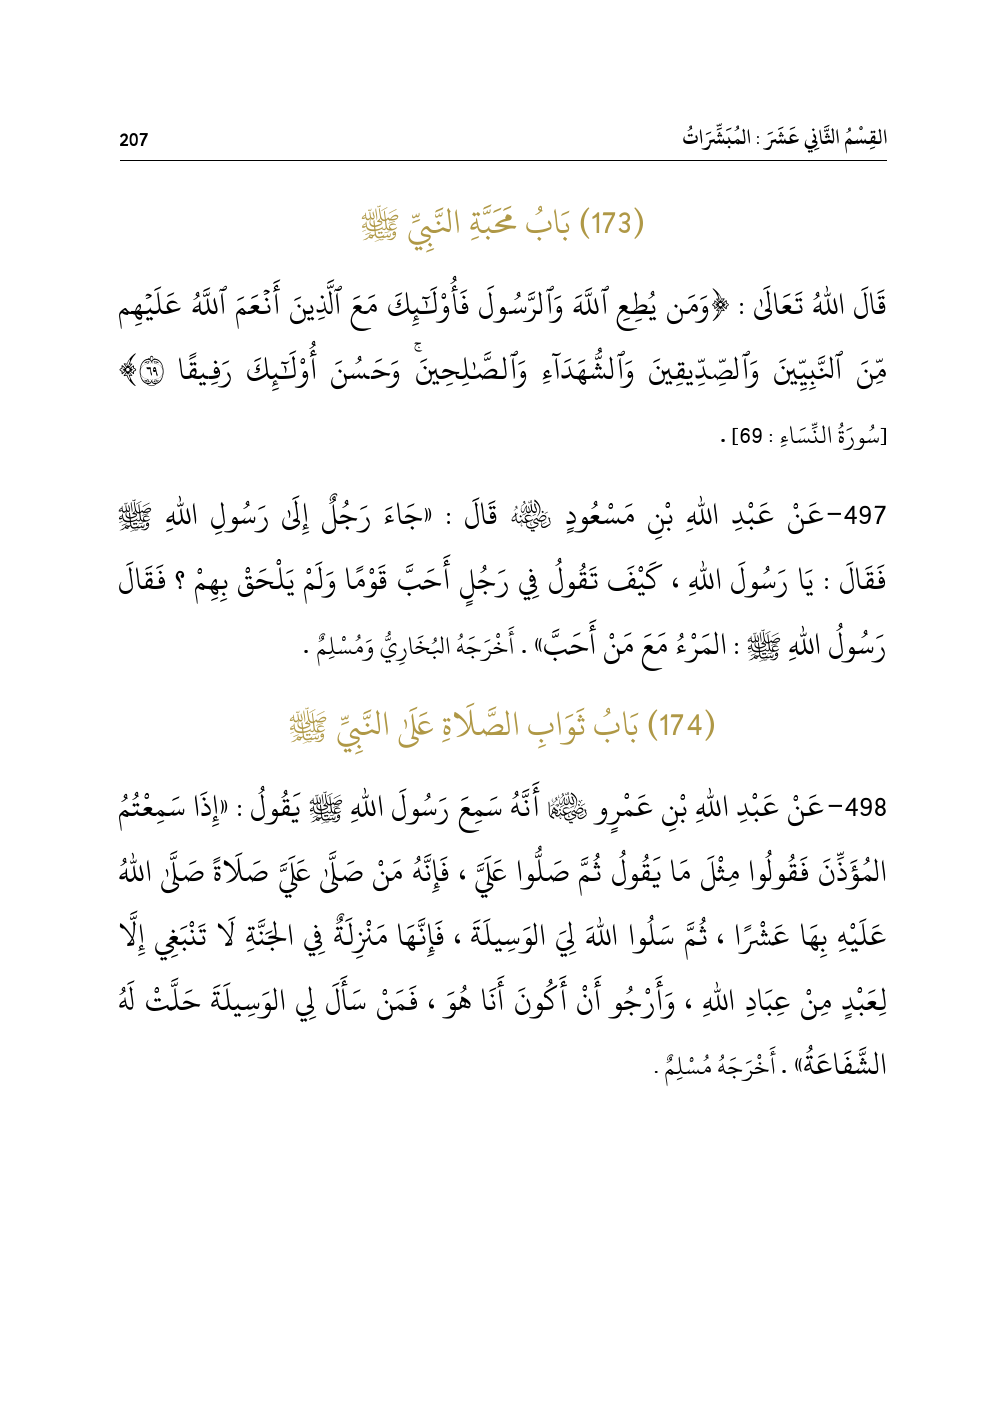 القِسْمُ الثَّانِي عَشَرَ : المُبَشِّرَاتُ 207
(173) بَابُ مَحَبَّةِ النَّبِيِّ ﷺ
قَالَ اللهُ تَعَالَىٰ : ﴿وَمَن يُطِعِ ٱللَّهَ وَٱلرَّسُولَ فَأُوْلَـٰٓئِكَ مَعَ ٱلَّذِينَ أَنۡعَمَ ٱللَّهُ عَلَيۡهِم
مِّنَ ٱلنَّبِيِّـۧنَ وَٱلصِّدِّيقِينَ وَٱلشُّهَدَآءِ وَٱلصَّـٰلِحِينَۚ وَحَسُنَ أُوْلَـٰٓئِكَ رَفِيقًا ٦٩﴾
[سُورَةُ النِّسَاءِ : 69] .
497-عَنْ عَبْدِ اللهِ بْنِ مَسْعُودٍ رَضِيَ اللهُ عَنْهُ قَالَ : «جَاءَ رَجُلٌ إِلَىٰ رَسُولِ اللهِ ﷺ
فَقَالَ : يَا رَسُولَ اللهِ ، كَيْفَ تَقُولُ فِي رَجُلٍ أَحَبَّ قَوْمًا وَلَمْ يَلْحَقْ بِهِمْ ؟ فَقَالَ
رَسُولُ اللهِ ﷺ : المَرْءُ مَعَ مَنْ أَحَبَّ» . أَخْرَجَهُ البُخَارِيُّ وَمُسْلِمٌ .
(174) بَابُ ثَوَابِ الصَّلَاةِ عَلَىٰ النَّبِيِّ ﷺ
498-عَنْ عَبْدِ اللهِ بْنِ عَمْرٍو رَضِيَ اللهُ عَنْهُمَا أَنَّهُ سَمِعَ رَسُولَ اللهِ ﷺ يَقُولُ : «إِذَا سَمِعْتُمُ
المُؤَذِّنَ فَقُولُوا مِثْلَ مَا يَقُولُ ثُمَّ صَلُّوا عَلَيَّ ، فَإِنَّهُ مَنْ صَلَّىٰ عَلَيَّ صَلَاةً صَلَّىٰ اللهُ
عَلَيْهِ بِهَا عَشْرًا ، ثُمَّ سَلُوا اللهَ لِيَ الوَسِيلَةَ ، فَإِنَّهَا مَنْزِلَةٌ فِي الجَنَّةِ لَا تَنْبَغِي إِلَّا
لِعَبْدٍ مِنْ عِبَادِ اللهِ ، وَأَرْجُو أَنْ أَكُونَ أَنَا هُوَ ، فَمَنْ سَأَلَ لِي الوَسِيلَةَ حَلَّتْ لَهُ
الشَّفَاعَةُ» . أَخْرَجَهُ مُسْلِمٌ .